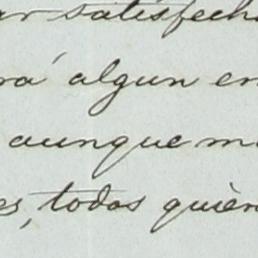 ar satisfech
rá algun en
aunque m
es, todas quièn